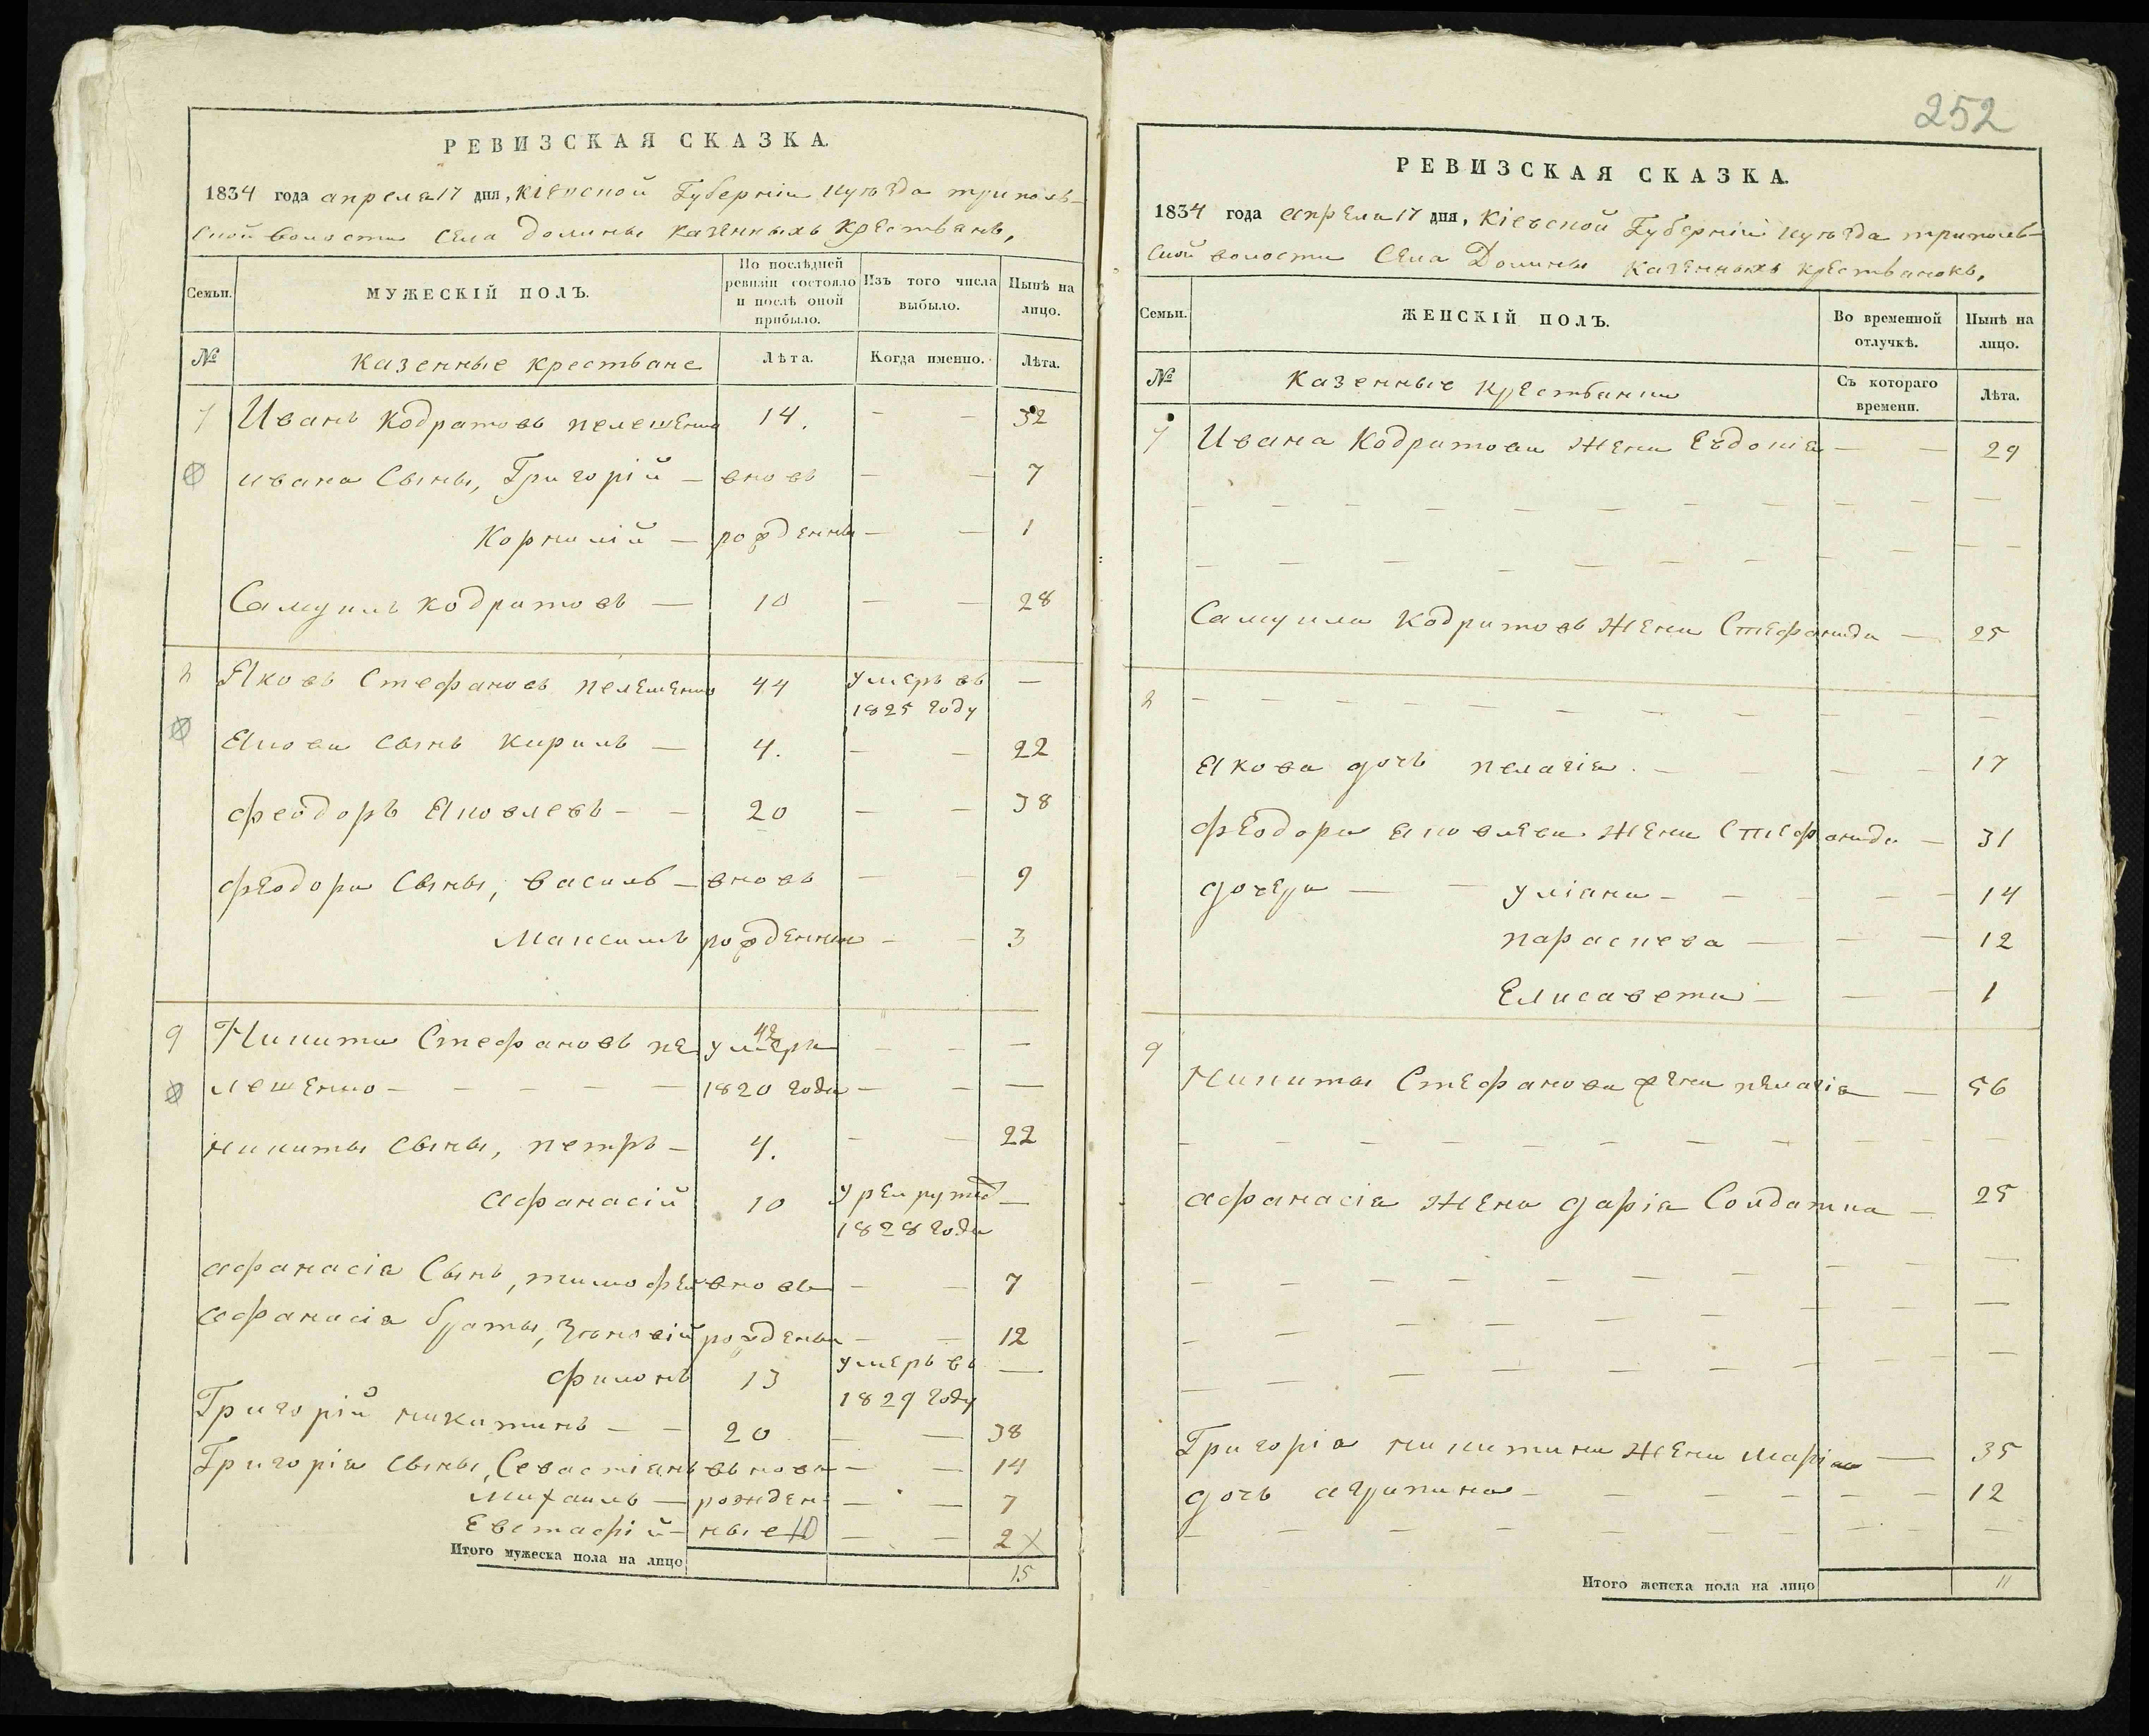 РЕВИЗСКАЯ СКАЗКА.
1834 года апреля 17 дня, Кіевской Губерніи и уѣзда триполь-
ской волости Села Долины казенныхъ крестьянъ,
Семьи.
МУЖЕСКІЙ ПОЛЪ.
По послѣдней ревизіи состояло и послѣ оной прибыло.
Изъ того числа выбыло.
Нынѣ на лицо.
№ казенные крестьане Лѣта. Когда именно. Лѣта.
7 Иванъ Кодратовъ пелешенко 14. — — 32
ивана Сыны, Григорій — вновь — — 7
Корнилій — рожденны — — 1
Самуилъ кодратовъ — 10 — — 28
8 Яковъ Стефановъ пелешенко 44 умеръ въ —
1825 году
Якова сынъ кирилъ — 4. — — 22
феодоръ Яковлевъ — — 20 — — 38
феодора Сыны, василь — вновь — — 9
Максимъ рожденны — — 3
9 Никита Стефановъ пе 42 умеръ — — —
лешенко — — — — — 1820 года — — —
никиты Сыны, петръ — 4. — — 22
Афанасій 10 у рекруты —
1828 года
афанасія Сынъ, тимофей вновь — — 7
афанасія браты, Зѣновій рожденны — — 12
филонъ 13 умеръ въ —
1829 году
Григорій никитинъ — — 20 — — 38
Григорія сыны, Севастіянъ вьновь — — 14
Михаилъ — рожден- — — 7
Евстафій — ные 10 — — 2 X
Итого мужеска пола на лицо 15
252
РЕВИЗСКАЯ СКАЗКА.
1834 года апреля 17 дня, Кіевской Губерніи и уѣзда триполь-
ской волости Села Долины казенныхъ крестьанокъ,
Семьи.
ЖЕНСКІЙ ПОЛЪ.
Во временной отлучкѣ.
Нынѣ на лицо.
№ казенные крестьанки Съ котораго времени. Лѣта.
7 Ивана Кодратова жена Евдокія — — 29
Самуила Кодратовъ жена Стефанида — 25
8 — — — — — — — — — — —
Якова дочь пелагія. — — — — 17
феодора яковлева жена Стефанида — 31
дочери — — уліана — — — — — 14
параскева — — — 12
Елисавета — — — 1
9
Никиты Стефанова жена пелагія — 56
афанасія жена дарія Солдатка — 25
Григорія никитина жена Марія — 35
дочь агрипина — — — — — — 12
Итого женска пола на лицо 11